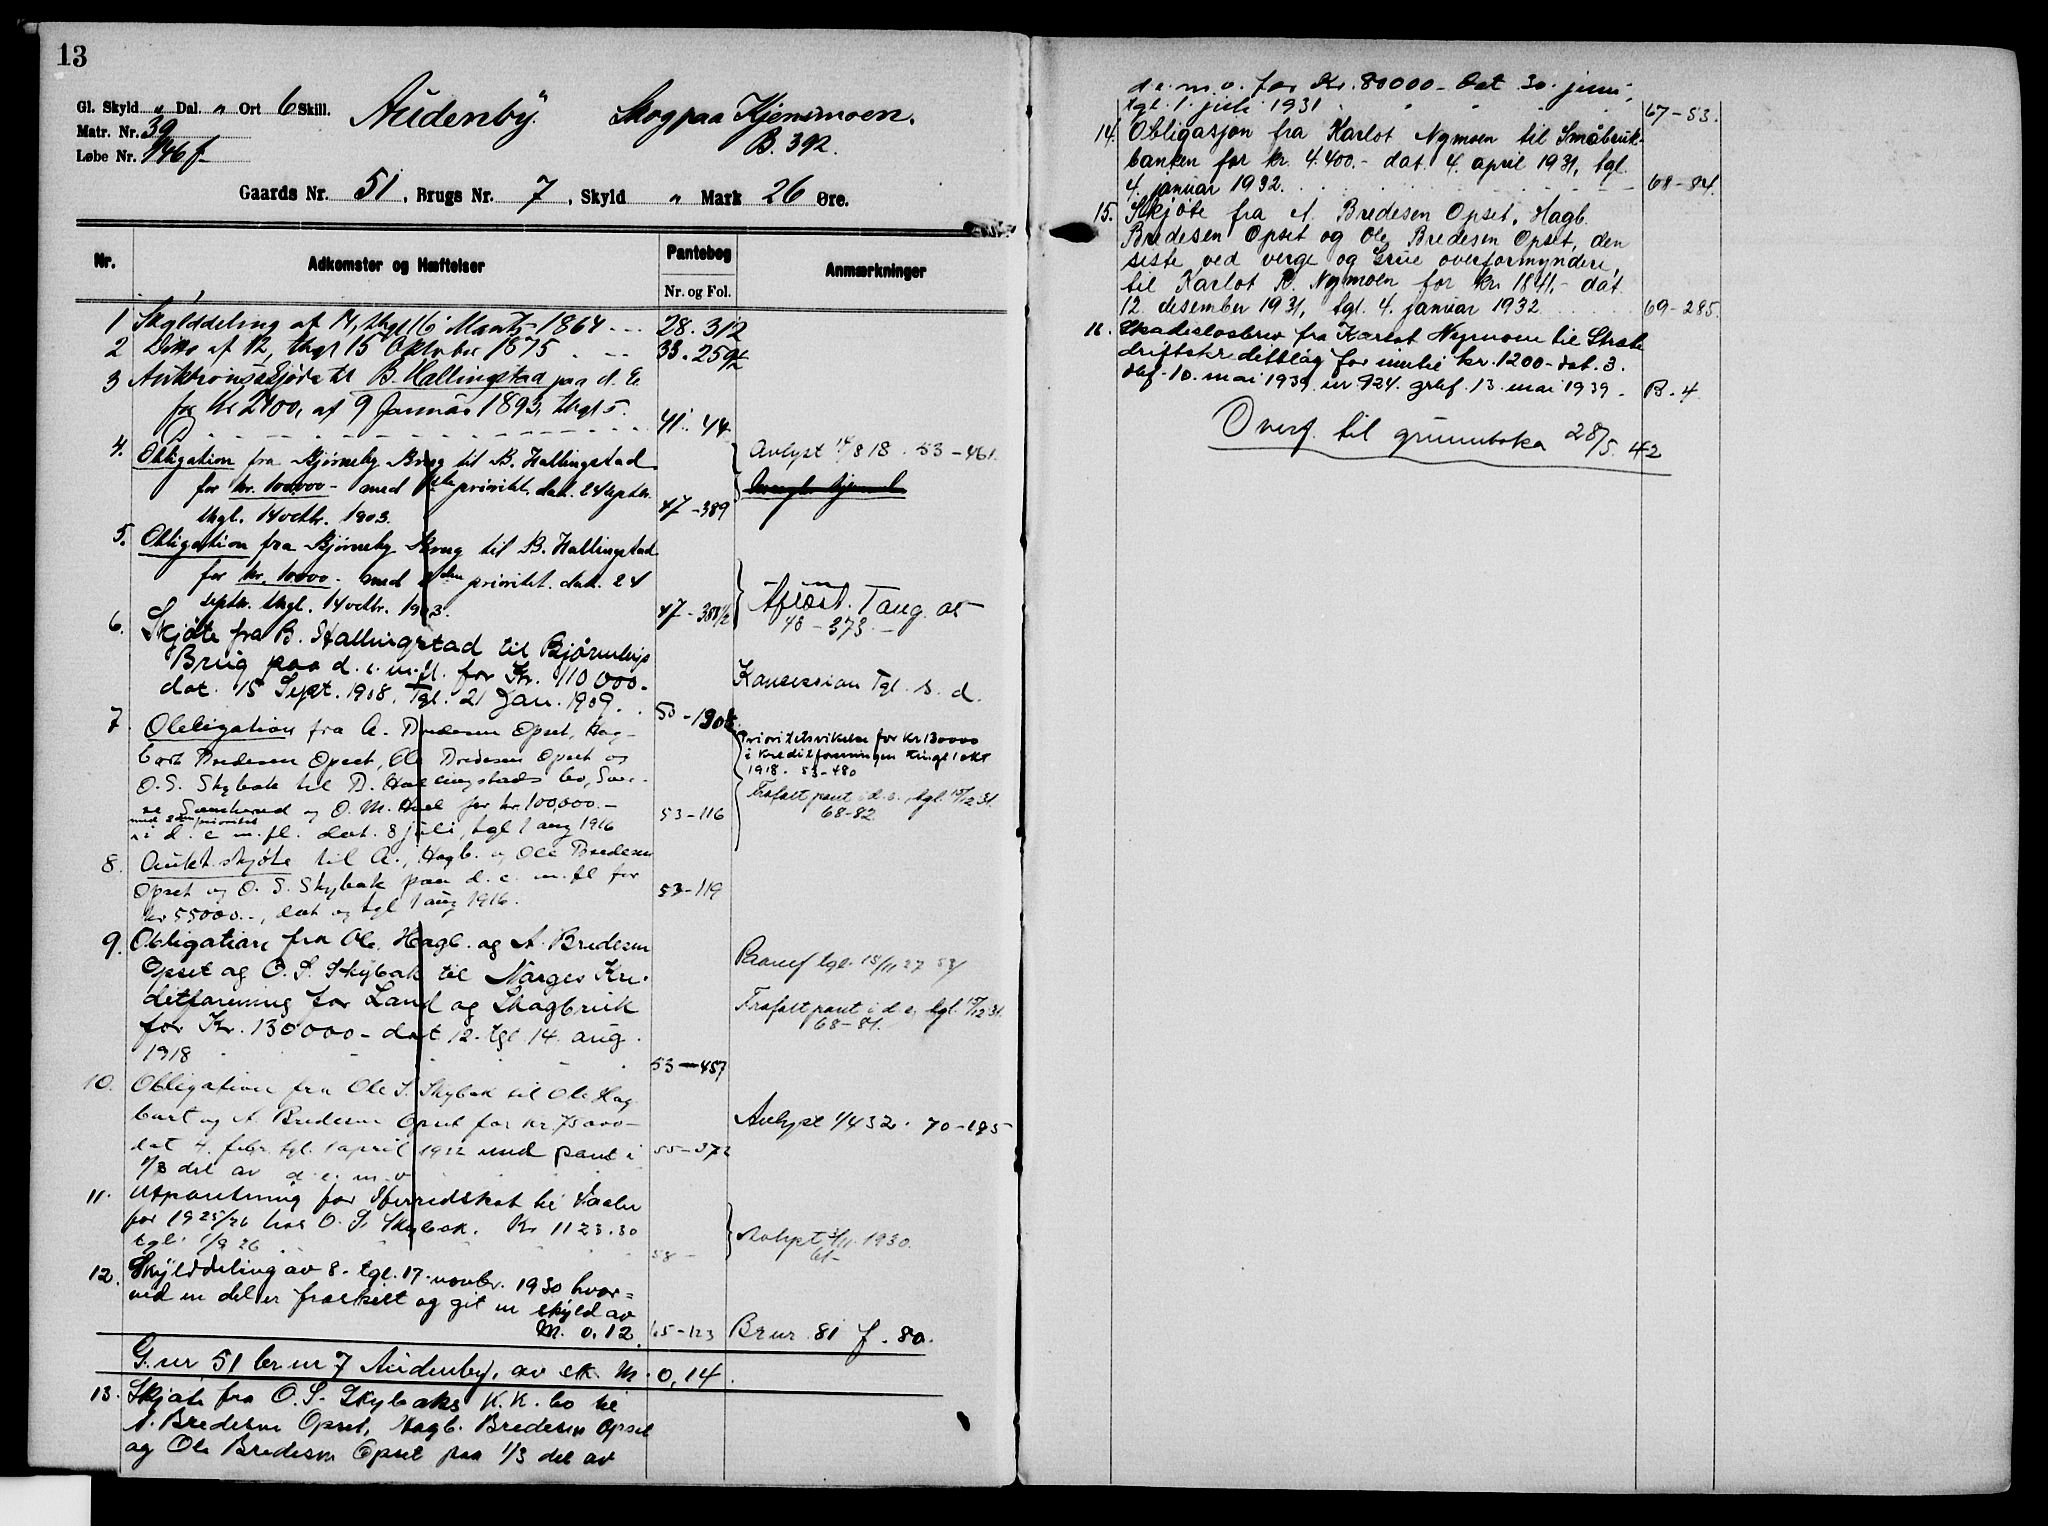 13
Gl. Skyld " Dal. " Ort 6 Skill.
Matr. Nr. 39
Løbe Nr. 146 f
Audenby. Skog paa Kjensmoen.
B. 392.
Gaards Nr. 51, Brugs Nr. 7, Skyld " Mark 26 Øre.
Nr. Adkomster og Hæftelser Pantebog Anmærkninger
Nr. og Fol.
1 Skylddeling af 14, thgl 16 Marts 1864 28. 312
2 Ditto af 12, thgl 15 Oktober 1875 33. 259
3 Auktionsskjøde til B. Hallingstad paa d. E.
for Kr 2400, af 9 Januar 1893, thgl 5. 41. 44
4. Obligation fra Bjørneby Brug til B. Hallingstad
for kr. 100000- med prioritet. dat. 24 septbr. Avlyst 14/8 18. 53-461.
thgl. 14 octbr. 1903. 47-389
5. Obligation fra Bjørneby Brug til B. Hallingstad
for kr. 10000- med 2den prioritet. dat. 24
septbr. thgl. 14 octbr. 1903. 47-388 1/2 Aflæst. Tang.
48-373.-
6. Skjøte fra B. Hallingstad til Bjørnebys
Brug paa d. e. m. fl. for Kr. 110 000-
dat. 15 Sept. 1908. Tgl. 21 Jan. 1909. 50-190 Koncession Tgl. s. d.
7. Obligation fra A. Bredesen Opset, Hag-
bart Bredesen Opset, Ole Bredesen Opset og
O. S. Skybak til B. Hallingstads bo, Sver-
re og O. M. Huel for kr. 100,000.-
med 2den prioritet
i d. e. m. fl. dat. 8 juli, tgl 1 aug 1916 53-116
Prioritetsvikelse for kr 130000
i Kreditforeningen tingl 1 okt
1918. 53-480
Frafalt pant i d. e., tgl. 15/12 31.
68-82
8. Aukt. skjøte til A., Hagb. og Ole Bredesen
Opset og O. S. Skybak paa d. e. m. fl for
kr 55000.-, dat og tgl 1 aug 1916. 53-119
9. Obligation fra Ole, Hagb. og A. Bredesen
Opset og O. S. Skybak til Norges Kre-
ditforening for Land og Skogbruk
for Kr. 130000- dat 12. tgl 14. aug.
1918 53-457
tgl. 15/11 27
Frafalt pant i d. e. tgl. 15/12 31.
68-81.
10. Obligation fra Ole S. Skybak til Ole Hag-
bart og A. Bredesen Opset for kr. 75000-
dat 4. febr. tgl. 1 april 1922 med pant i 55-372
1/3 del av d. e. m. v. Avlyst 1/4 32. 70-195
11. Utpantning for Herredskat til Vaaler
for 1925/26 hos O. S. Skybak. Kr 1123.30
tgl. 1/9 26 58- Avlyst 1930.
61-
12. Skylddeling av 8. tgl. 17. novbr. 1930 hvor-
ved en del er fraskilt og git en skyld av
M. 0.12. 65-123 Br nr. 81 f. 80.
G. nr 51 br. nr 7 Audenby, av sk. M. 0,14.
13. Skjøte fra O. S. Skybaks K. K. bo til
A. Bredesen Opset, Hagb. Bredesen Opset
og Ole Bredesen Opset paa 1/3 del av
d. e. m. v. for Kr. 80000- Dat 30. juni,
tgl. 1. juli 1931 67-53.
14. Obligasjon fra Karlot Nymoen til Småbruk-
banken for kr. 4.400.- dat. 4. april 1931, tgl.
4. januar 1932. 68-84.
15. Skjøte fra A. Bredesen Opset, Hagb.
Bredesen Opset og Ole Bredesen Opset, den
siste ved verge og Grue overformynderi,
til Karlot R. Nymoen for kr 1841,- dat.
12. desember 1931, tgl. 4. januar 1932 69-285.
16. Skadesløsbrev fra Karlot Nymoen til
driftskredittlag for inntil kr. 1200- dat. 3.
dbf. 10. mai 1939 nr 924. grbf. 13. mai 1939. B. 4.
Overf. til grunnboka 28/5. 42